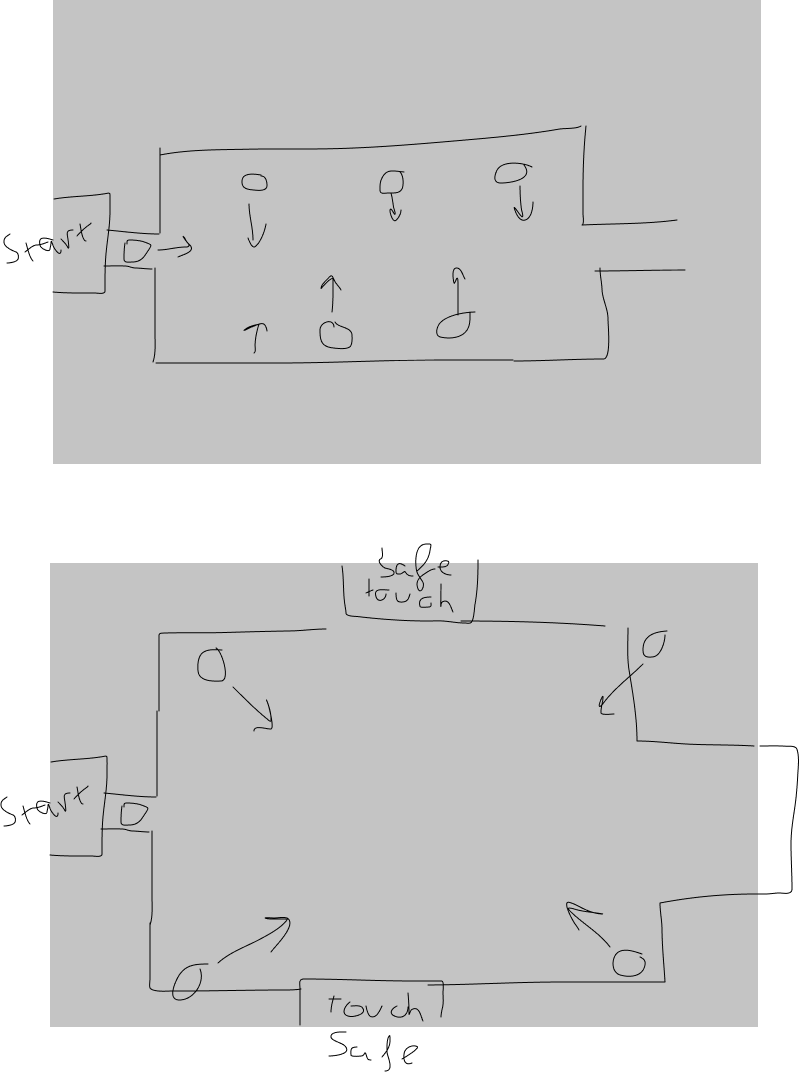 Start
Safe
touch
Start
touch
Safe